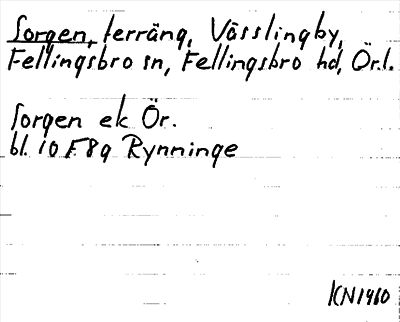 Sorgen, terräng, Vässlingby,
Fellingsbro sn, Fellingsbro hd, Ör.l.
Sorgen ek Ör.
bl. 10 F 8 g Rynninge
KN 1960